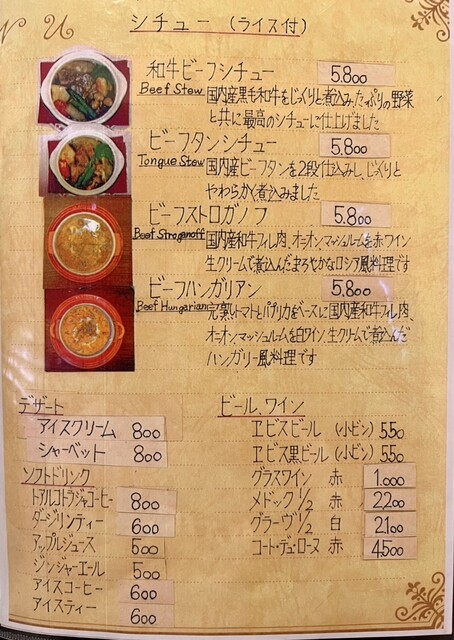 N U
シチュー (ライス付)
和牛ビーフシチュー 5.800
Beef Stew 国内産黒毛和牛をじっくりと煮込み、たっぷりの野菜
と共に最高のシチューに仕上げました
ビーフタンシチュー 5.800
Tongue Stew 国内産ビーフタンを2段仕込みし、じっくりと
やわらかく煮込みました
ビーフストロガノフ 5.800
Beef Stroganoff 国内産和牛フィレ肉、オニオン、マッシュルームを赤ワイン
生クリームで煮込んだまろやかなロシア風料理です
ビーフハンガリアン 5.800
Beef Hungarian 完熟トマトとパプリカをベースに国内産和牛フィレ肉、
オニオン、マッシュルームを白ワイン、生クリームで煮込んだ
ハンガリー風料理です
デザート
アイスクリーム 800
シャーベット 800
ソフトドリンク
トアルコトラジャコーヒー 800
ダージリンティー 600
アップルジュース 500
ジンジャーエール 500
アイスコーヒー 600
アイスティー 600
ビール、ワイン
ヱビスビール (小ビン) 550
ヱビス黒ビール (小ビン) 550
グラスワイン 赤 1.000
メドック 1/2 赤 2.200
グラーヴ 1/2 白 2.100
コート・デュ・ローヌ 赤 4.500